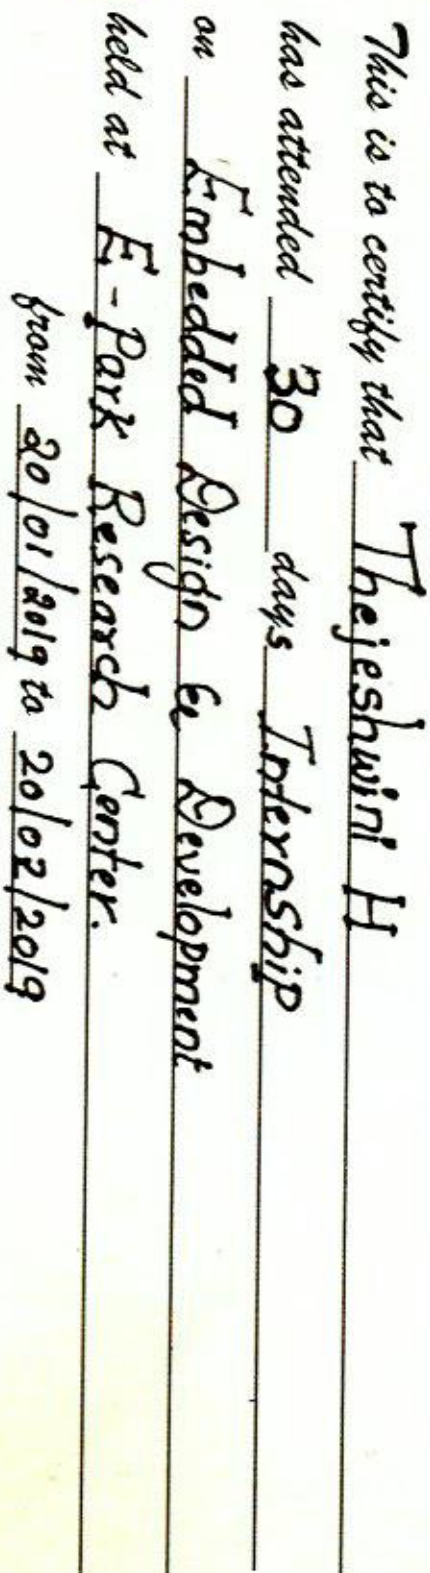 This is to certify that Thejeshwini H
has attended 30 days Internship
on Embedded Design & Development
held at E-Park Research Center.
from 20/01/2019 to 20/02/2019